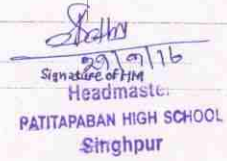 29/9/16
Signature of HM
Headmaster
PATITAPABAN HIGH SCHOOL
Singhpur